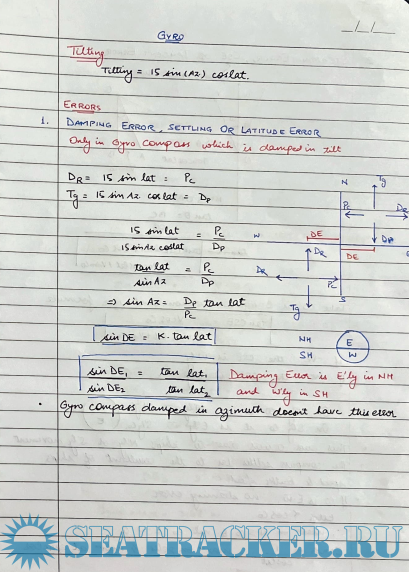 __/__/__
GYRO
Tilting
Tilting = 15 sin(AZ) coslat.
ERRORS
1. DAMPING ERROR, SETTLING OR LATITUDE ERROR
Only in Gyro compass which is damped in tilt
DR = 15 sin lat = Pc
Tg = 15 sin Az cos lat = Dp
15 sin lat / 15 sin Az coslat = Pc / Dp
tan lat / sin Az = Pc / Dp
⇒ sin Az = Dp / Pc tan lat
sin DE = K. tan lat
sin DE1 / sin DE2 = tan lat1 / tan lat2
Damping Error is E'ly in NH
and W'ly in SH
• Gyro compass damped in azimuth doesnt have this error
N
Tg
Pc
DR
W
DE
DR
Dp
DE
DR
Pc
Tg
S
NH E
SH W
SEATRACKER.RU